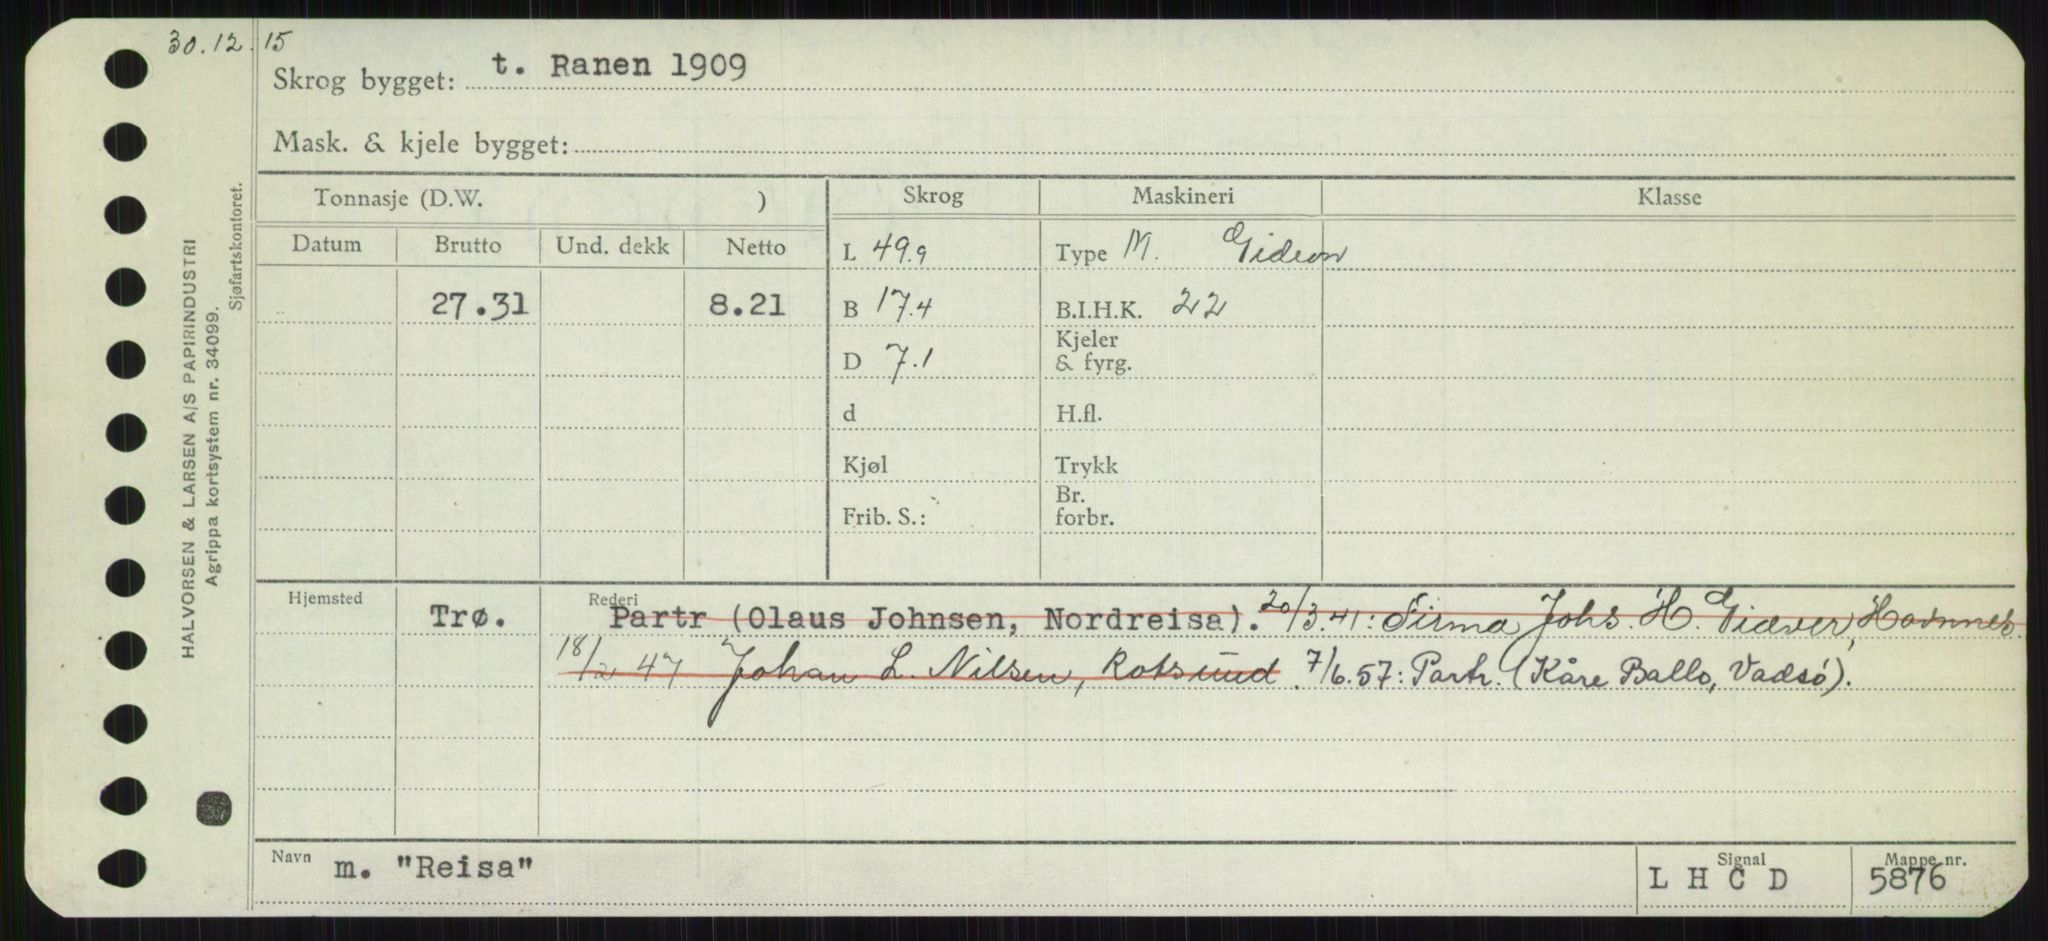 30.12.15
Skrog bygget: t. Ranen 1909
Mask. & kjele bygget:
HALVORSEN & LARSEN A/S PAPIRINDUSTRI
Agrippa kortsystem nr. 34099.
Sjøfartskontoret.
Tonnasje (D.W. ) Skrog Maskineri Klasse
Datum Brutto Und. dekk Netto L 49.9 Type M. Gideon
27.31 8.21 B 17.4 B.I.H.K. 22
D 7.1 Kjeler & fyrg.
d H.fl.
Kjøl Trykk
Frib. S.: Br. forbr.
Hjemsted Rederi
Trø. Partr (Olaus Johnsen, Nordreisa). 20/3.41: Firma Johs. H. Giæver, Havnnes.
18/2 47 Johan L. Nilsen, Rotsund. 7/6.57: Partr. (Kåre Ballo, Vadsö).
Navn m. "Reisa" Signal L H C D Mappe nr. 5876